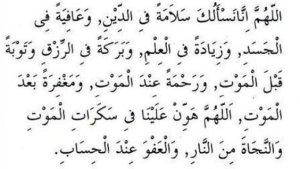 اَللّٰهُمَّ اِنَّانَسْأَلُكَ سَلَامَةً فِى الدِّيْنِ, وَعَافِيَةً فِى
الْجَسَدِ, وَزِيَادَةً فِى الْعِلْمِ, وَبَرَكَةً فِى الرِّزْقِ وَتَوْبَةً
قَبْلَ الْمَوْتِ, وَرَحْمَةً عِنْدَ الْمَوْتِ, وَمَغْفِرَةً بَعْدَ
الْمَوْتِ, اَللّٰهُمَّ هَوِّنْ عَلَيْنَا فِى سَكَرَاتِ الْمَوْتِ
وَالنَّجَاةَ مِنَ النَّارِ, وَالْعَفْوَ عِنْدَ الْحِسَابِ.